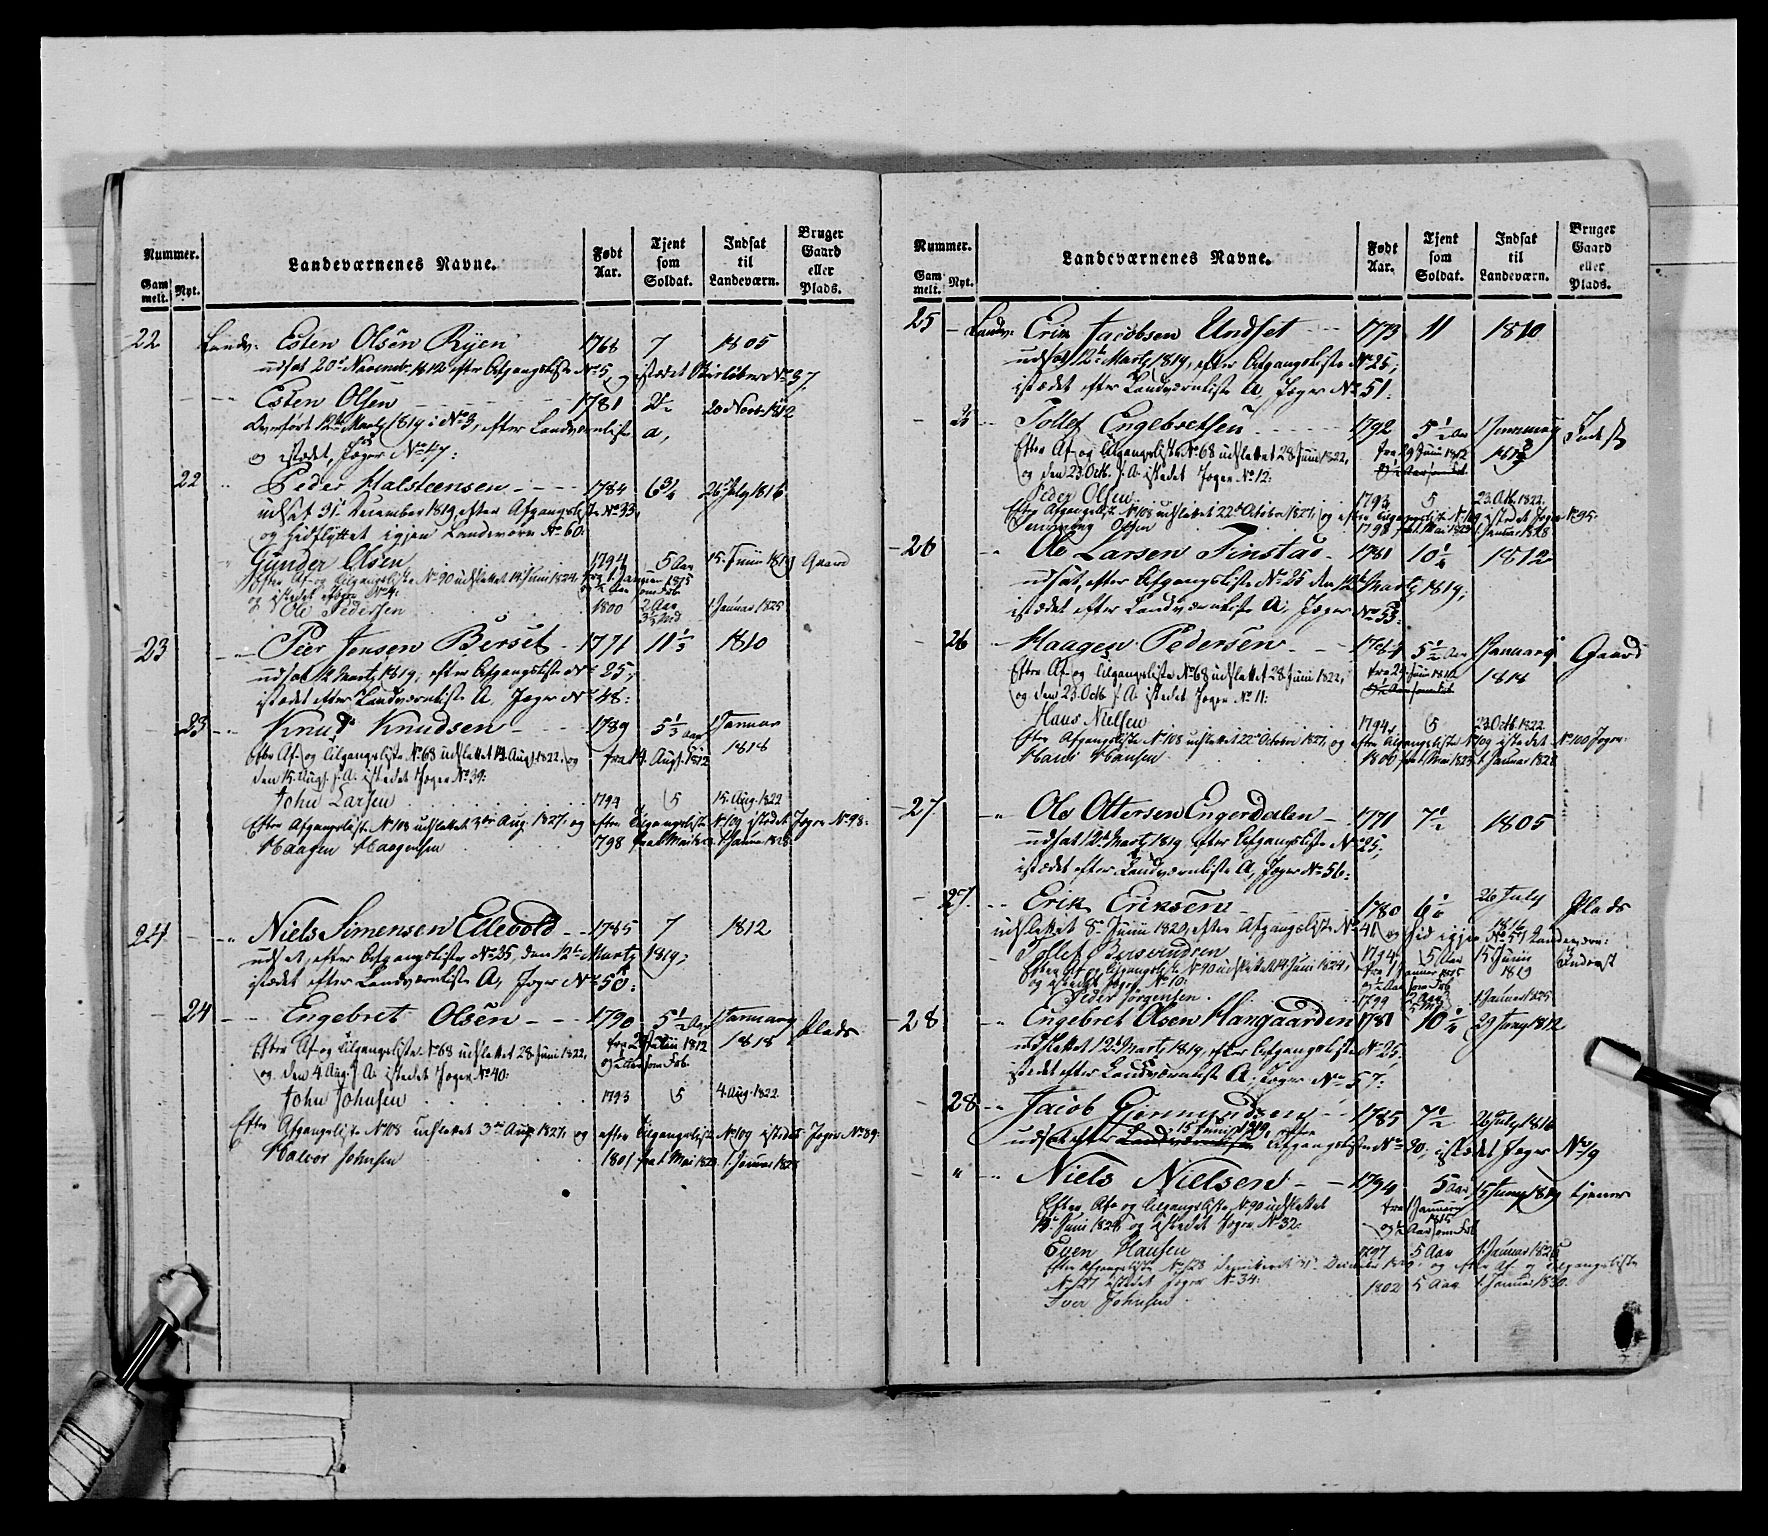 Nummer.
Gam melt.
Nyt.
Landeværnenes Navne.
Født Aar.
Tjent som Soldat.
Indsat til Landeværn.
Bruger Gaard eller Plads.
22 Landv. Esten Olsen Ryen 1768 7 1805
udsat 20de Novemb. 1812 efter Afgangsliste No 5, og istædet Skieløber No 37.
Esten Olsen 1781 20 Novb. 1812
Overført 12te Martz 1819 i No 3, efter Landværnliste a,
og istædet, Jæger No 47:
22 Peder Halsteensen 1784 6 3/4 26 July 1816
udsat 31. December 1819 efter Afgangsliste No 33,
og hidflyttet igjen Landeværn No 60:
Gunder Olsen 1794 5 Aar 15. Junii 1819 Gaard
Efter Af- og Tilgangsliste No 90 udslettet 14 Juni 1824 fra 1 Januar 1815
og istedet Jæger No 4:
Ole Pedersen 1800 2 Aar 1 Januar 1825
23 Peer Jensen Berset 1771 11 1/3 1810
udsat 12 Martz 1819, efter Afgangsliste No 25,
istædet efter Landværnliste A, Jæger No 48:
23 Knud Knudsen 1789 5 1/3 Aar 1 Januar 1818
Efter Af- og Tilgangsliste No 68 udslettet 14. Aug. 1822, og fra 14. Augst. 1812
den 15. Augs. s. A. istedet Jæger No 39:
John Larsen 1794 5 15. Aug. 1822
Efter Afgangsliste No 108 udslettet 3die Aug. 1827, og efter Tilgangsliste No 109 istedet Jæger No 98:
Haagen Haagensen 1798 fra 1 Mai 1823 1. Januar 1828
24 Niels Simensen Edevold 1785 7 1812
udsat, efter Afgangsliste No 25, den 12te Martz 1819;
istædet efter Landværnliste A, Jæger No 50:
24 Engebret Olsen 1790 5 1/2 Aar 1 Januarij 1818 Plads
Efter Af- og Tilgangsliste No 68 udslettet 28 Juni 1822, fra 29 Junii 1812
og den 4 Aug. s. A. istedet Jæger No 40: og 1/2 Aar som Frb.
John Johnsen 1793 5 4. Aug. 1822
Efter Afgangsliste No 108 udslettet 3die Aug. 1827, og efter Tilgangsliste No 109 istedet Jæger No 89:
Halvor Johnsen 1801 fra 1 Mai 1823 1. Januar 1828
Nummer.
Gam melt.
Nyt.
Landeværnenes Navne.
Født Aar.
Tjent som Soldat.
Indsat til Landeværn.
Bruger Gaard eller Plads.
25 Landv. Erik Jacobsen Undset 1773 11 1810
udsat 12te Martz 1819, efter Afgangsliste No 25,
istædet efter Landværnliste A, Jæger No 51:
25 Tollef Engebretsen 1792 5 1/2 Aar 1 Januarij 1818
Efter Af- og Tilgangsliste No 68 udslettet 28 Juni 1822, fra 29 Junii 1812
og den 23 Octb. s. A. istedet Jæger No 12:
Peder Olsen 1793 5 23. Octb. 1822
Efter Afgangsliste No 108 udslettet 22de October 1827, og efter Tilgangsliste No 109 istedet Jæger No 95:
Olsen 1798 fra 1. Mai 1823 1. Januar 1828
26 Ole Larsen Finstad 1781 10 1/4 1812
udsat, efter Afgangsliste No 25 den 12te Martz 1819;
istædet efter Landværnliste A, Jæger No 53:
26 Haagen Pedersen 5 1/2 Aar 1 Januarij 1818 Gaard
Efter Af- og Tilgangsliste No 68 udslettet 28 Juni 1822, fra 29 Juni 1812
og den 23 Octb s. A. istedet Jæger No 11:
Hans Nielsen 1794 5 23 Octb. 1822
Efter Afgangsliste No 108 udslettet 22de October 1827, og efter Tilgangsliste No 109 istedet No 100 Jæger:
Hans Hansen 1800 fra 1. Mai 1823 1. Januar 1828
27 Ole Ottersen Engerdalen 1771 7 1/2 1805
udsat 12te Martz 1819 efter Afgangsliste No 25,
istædet efter Landværnliste A, Jæger No 56:
27. Erik Eriksen 1780 26 July 1816 Plads
udslettet 8de Junii 1820, efter Afgangsliste No 41, og hid igjen No 57 Landeværn:
Tollef 1794 5 Aar 15 Junii 1819 Inderst
Efter Af- og Tilgangsliste No 90 udslettet 14 Juni 1824, fra 1 Januar 1815
og istedet Jæger No 10: og 1/2 Aar som Frb
Peder Jørgensen. 1799 2 Aar 1. Januar 1825
28 Engebret Olsen Haugaarden 1781 10 1/4 29 Juny 1812
udslettet 12te Martz 1819, efter Afgangsliste No 25,
istedet efter Landværnliste A, Jæger No 57:
28 Jacob Giermundsen 1785 7 1/2 26 July 1816
udsat efter 15 Junii 1819, efter Afgangsliste No 30, istædet Jæger No 19
Niels Nielsen 1794 5 Aar 15 Juny 1819 tjener
Efter Af- og Tilgangsliste No 90 udslettet fra 1 Januar 1815
14de Juni 1824, og istedet Jæger No 32: og 1/2 Aar som Frb
Even Hansen 1797 5 Aar 1. Januar 1825
Efter Afgangsliste No 128 31te December og efter Af og Tilgangsliste
No 127 istedet Jæger No 34:
Iver Johnsen 1802 5 Aar 1. Januar 1830